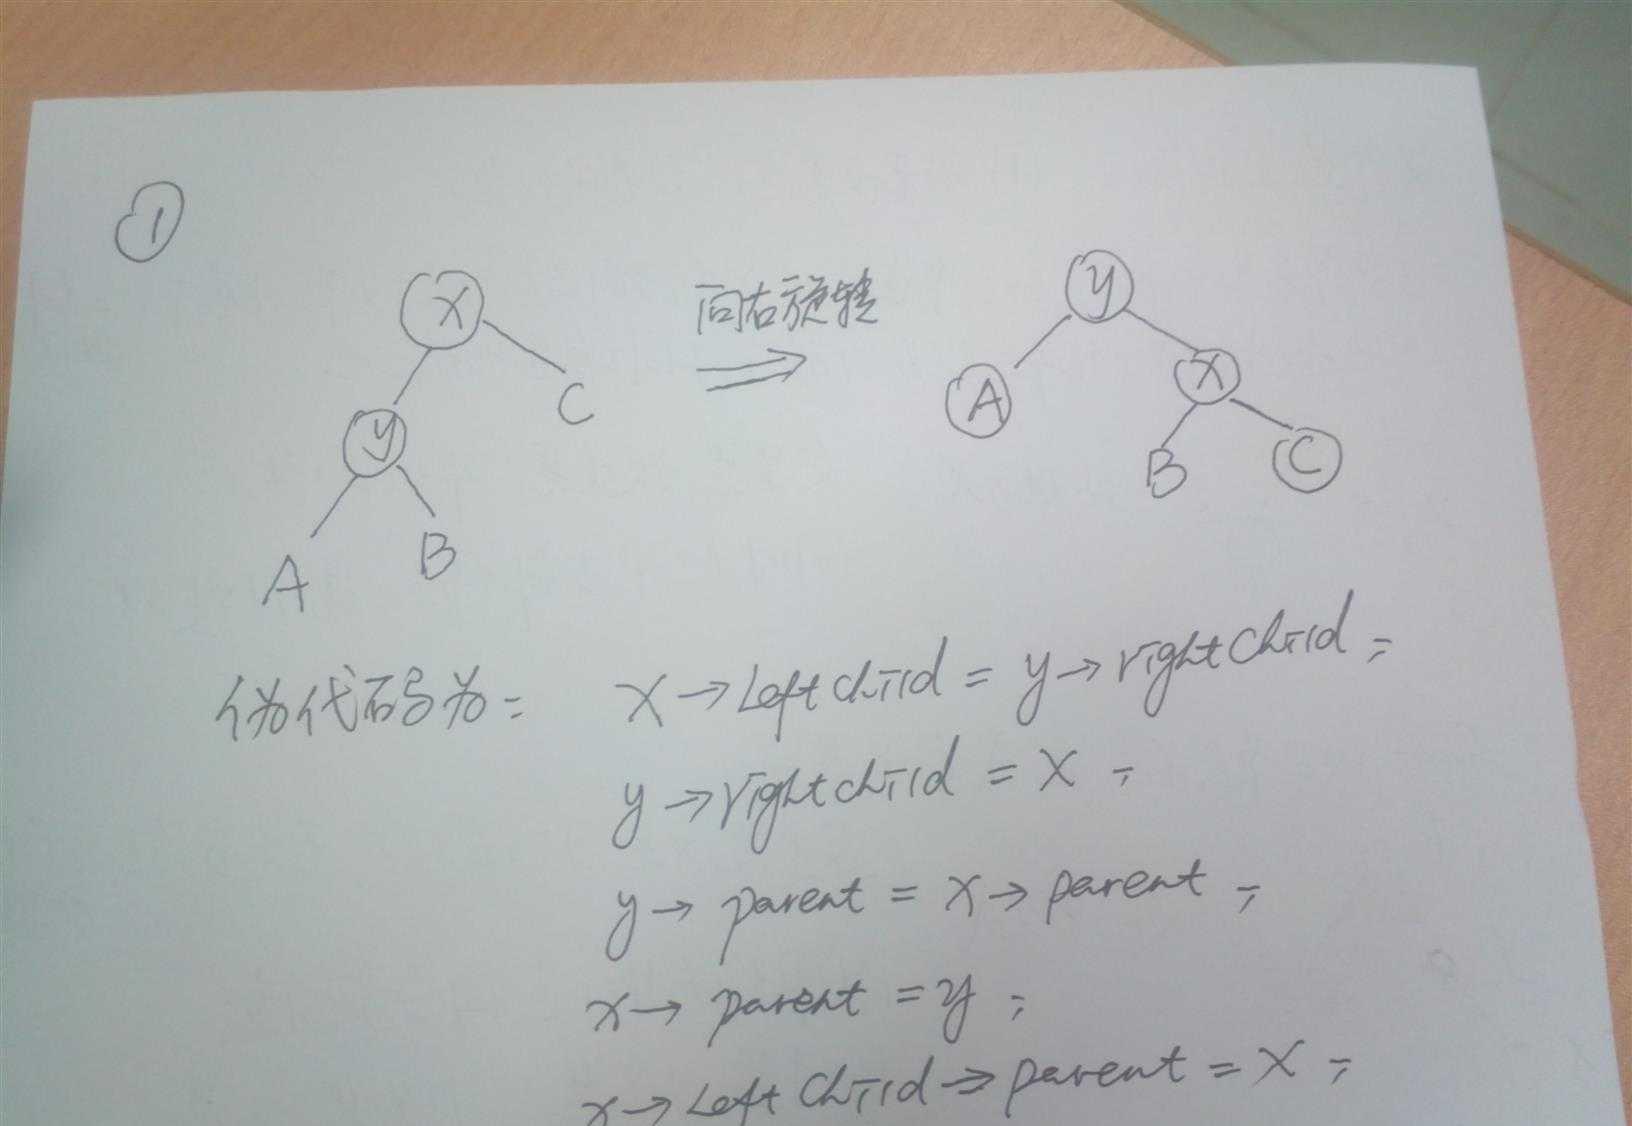 ①
X 向右旋转 y
C A X
y B C
A B
伪代码为: X→Leftchild = y→rightchild;
y→rightchild = X;
y→parent = X→parent;
x→parent = y;
x→Leftchild→parent = X;